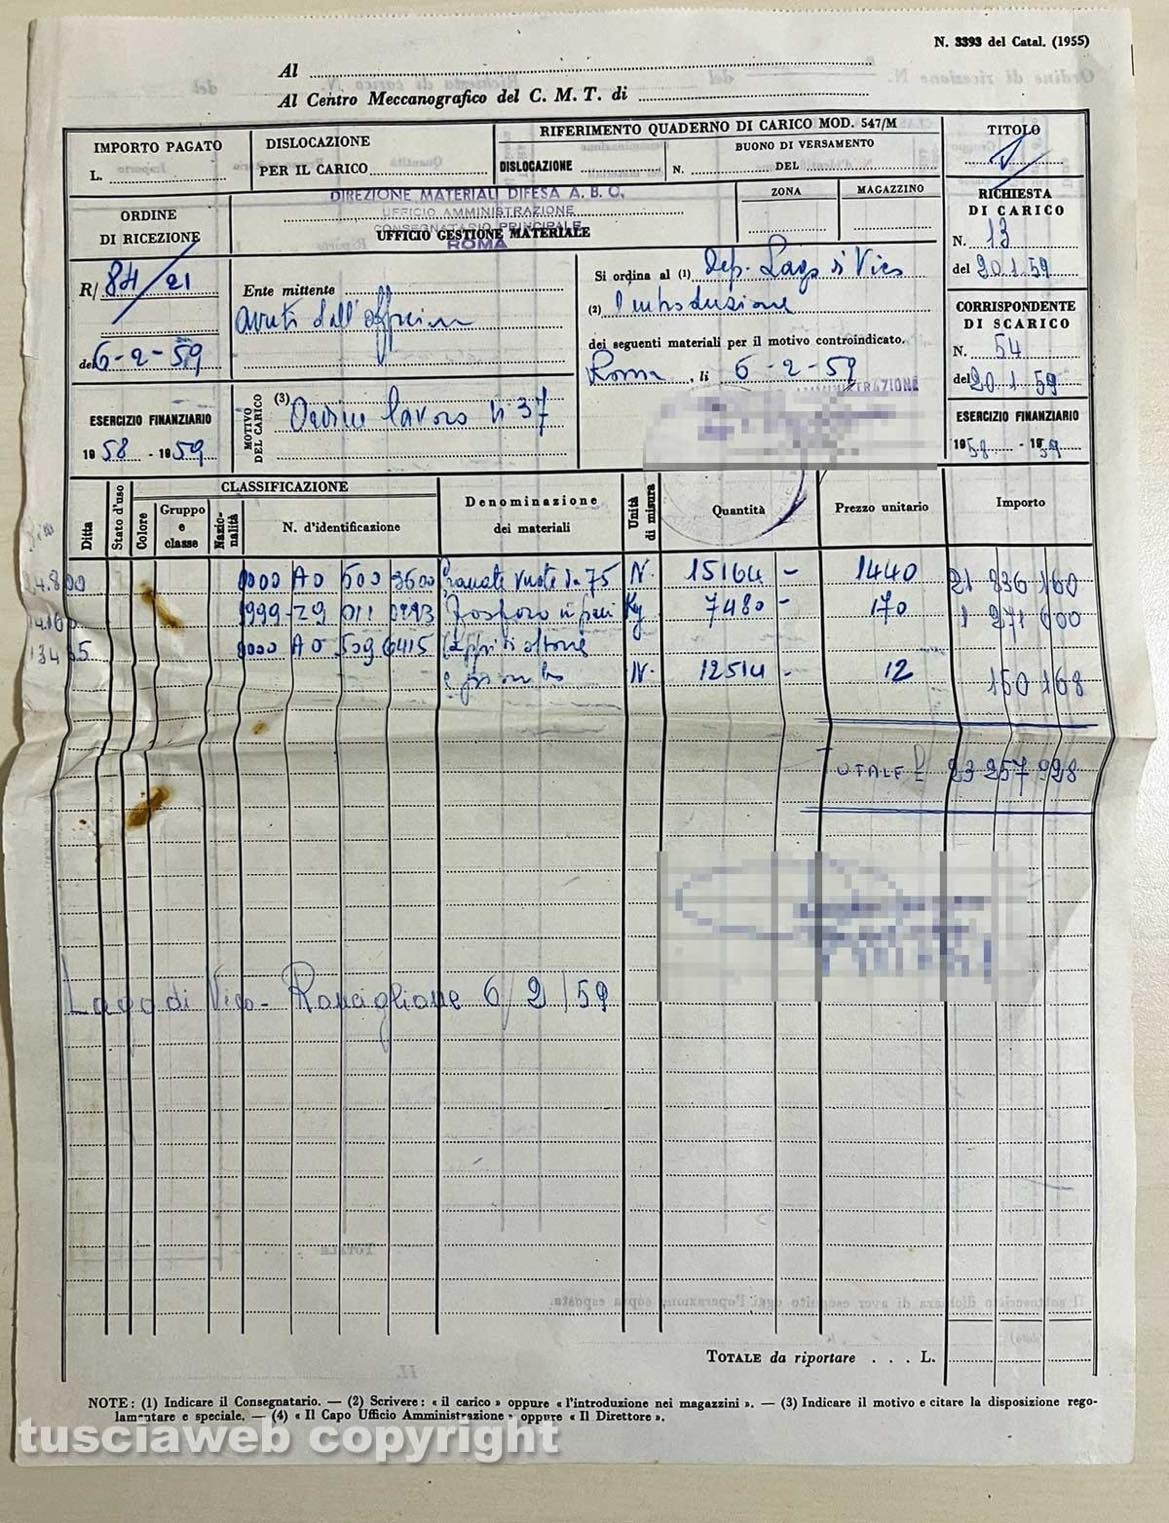 N. 3393 del Catal. (1955)
Al
Al Centro Meccanografico del C. M. T. di
IMPORTO PAGATO
L.
DISLOCAZIONE
PER IL CARICO
RIFERIMENTO QUADERNO DI CARICO MOD. 547/M
DISLOCAZIONE
BUONO DI VERSAMENTO
N. DEL
TITOLO
ORDINE
DI RICEZIONE
DIREZIONE MATERIALI DIFESA A. B. C.
UFFICIO AMMINISTRAZIONE
CONSEGNATARIO PRINCIPALE
UFFICIO GESTIONE MATERIALE
ROMA
ZONA
MAGAZZINO
RICHIESTA
DI CARICO
N. 13
del 20.1.59
R/ 84/21
del 6-2-59
Ente mittente
Si ordina al (1) Dep. Lago di Vico
(2) l'introduzione
dei seguenti materiali per il motivo controindicato.
Roma, li 6-2-59
AMMINISTRAZIONE
CORRISPONDENTE
DI SCARICO
N. 54
del 20.1.59
ESERCIZIO FINANZIARIO
1958 - 1959
MOTIVO
DEL CARICO
(3) Ordine lavoro n 37
ESERCIZIO FINANZIARIO
1958 - 1959
Ditta
Stato d'uso
CLASSIFICAZIONE
Colore
Gruppo
e
classe
Nazio-
nalità
N. d'identificazione
Denominazione
dei materiali
Unità
di misura
Quantità
Prezzo unitario
Importo
0000 A0 500 3600 Granate vuote da 75 N. 15164 - 1440 21 836 160
1999-29 011 Fosforo in pani Kg 7480 - 170 1 271 600
0000 A0 509 6415 di ottone
N. 12514 - 12 150 168
TOTALE £ 23 257 928
Lago di Vico - Ronciglione 6/2/59
TOTALE da riportare . . . L.
NOTE: (1) Indicare il Consegnatario. — (2) Scrivere: « il carico » oppure « l'introduzione nei magazzini ». — (3) Indicare il motivo e citare la disposizione rego-
lamentare e speciale. — (4) « Il Capo Ufficio Amministrazione » oppure « Il Direttore ».
tusciaweb copyright